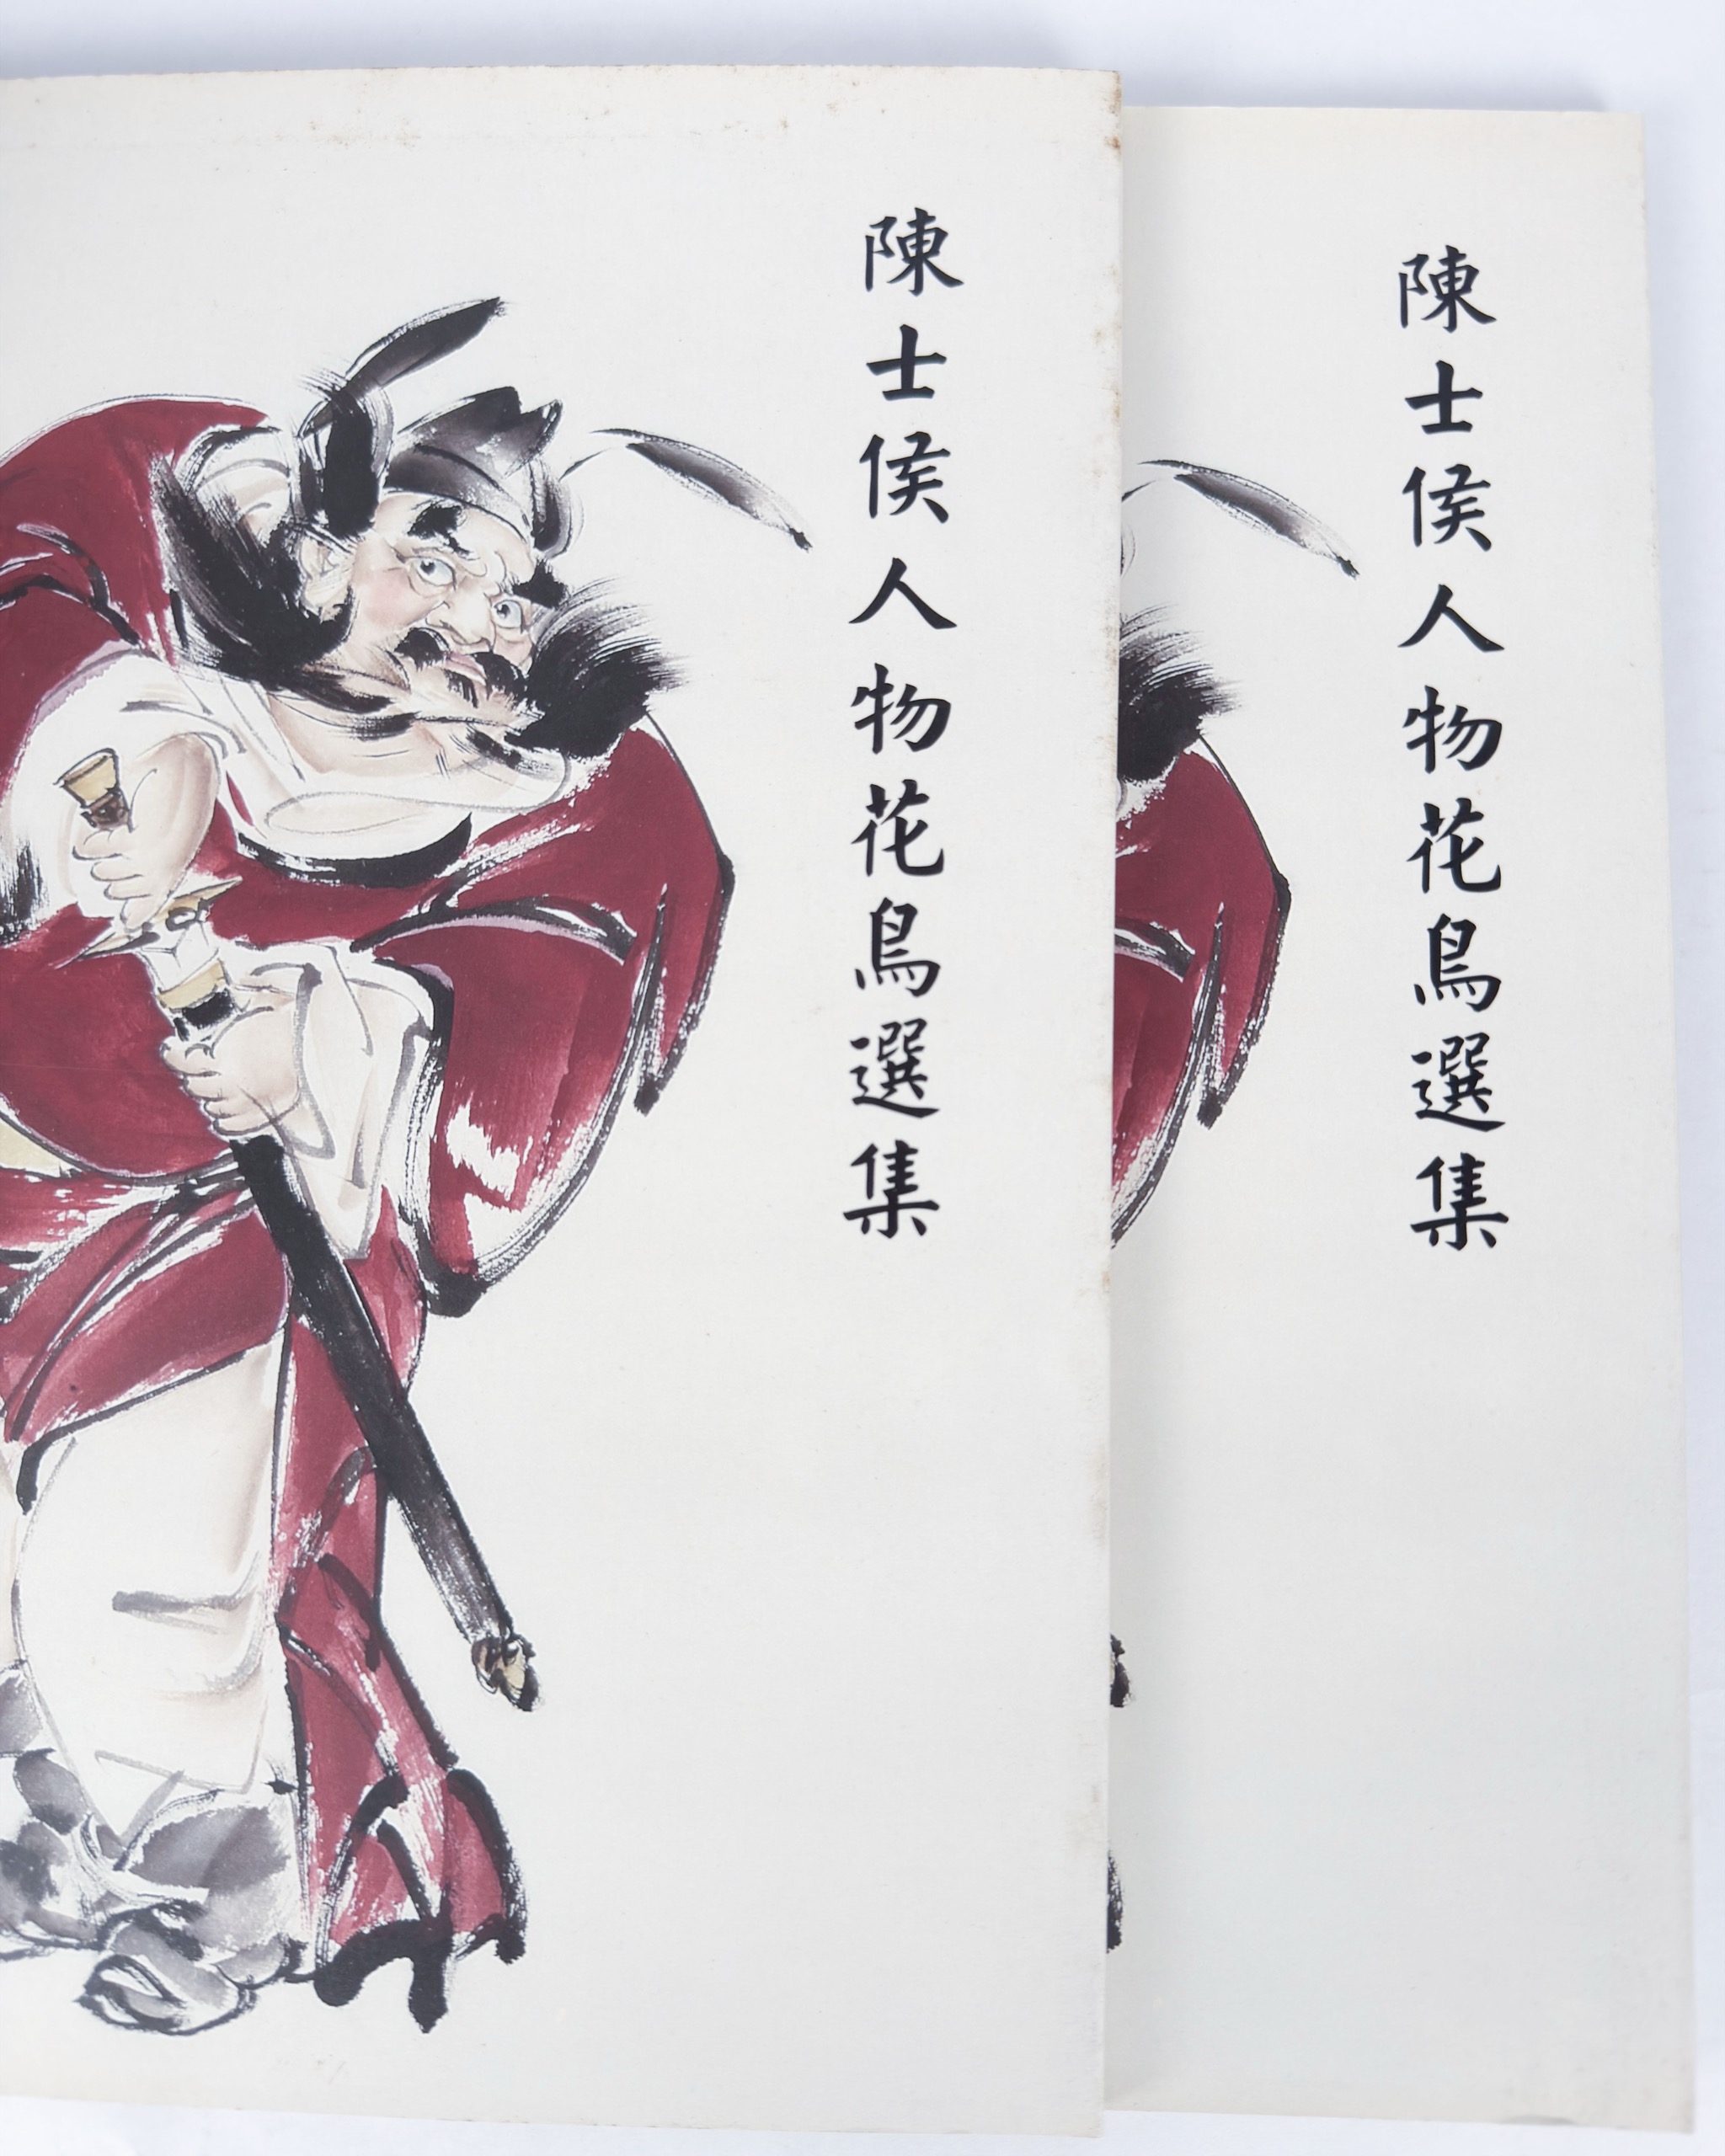 陳士侯人物花鳥選集
陳士侯人物花鳥選集